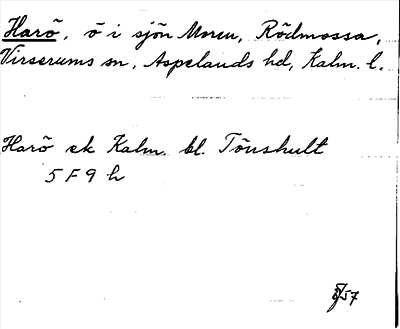 Harö, ö i sjön Moren, Rödmossa,
Virserums sn, Aspelands hd, Kalm. l.
Harö ek Kalm. bl. Tönshult
5 F 9 h
57